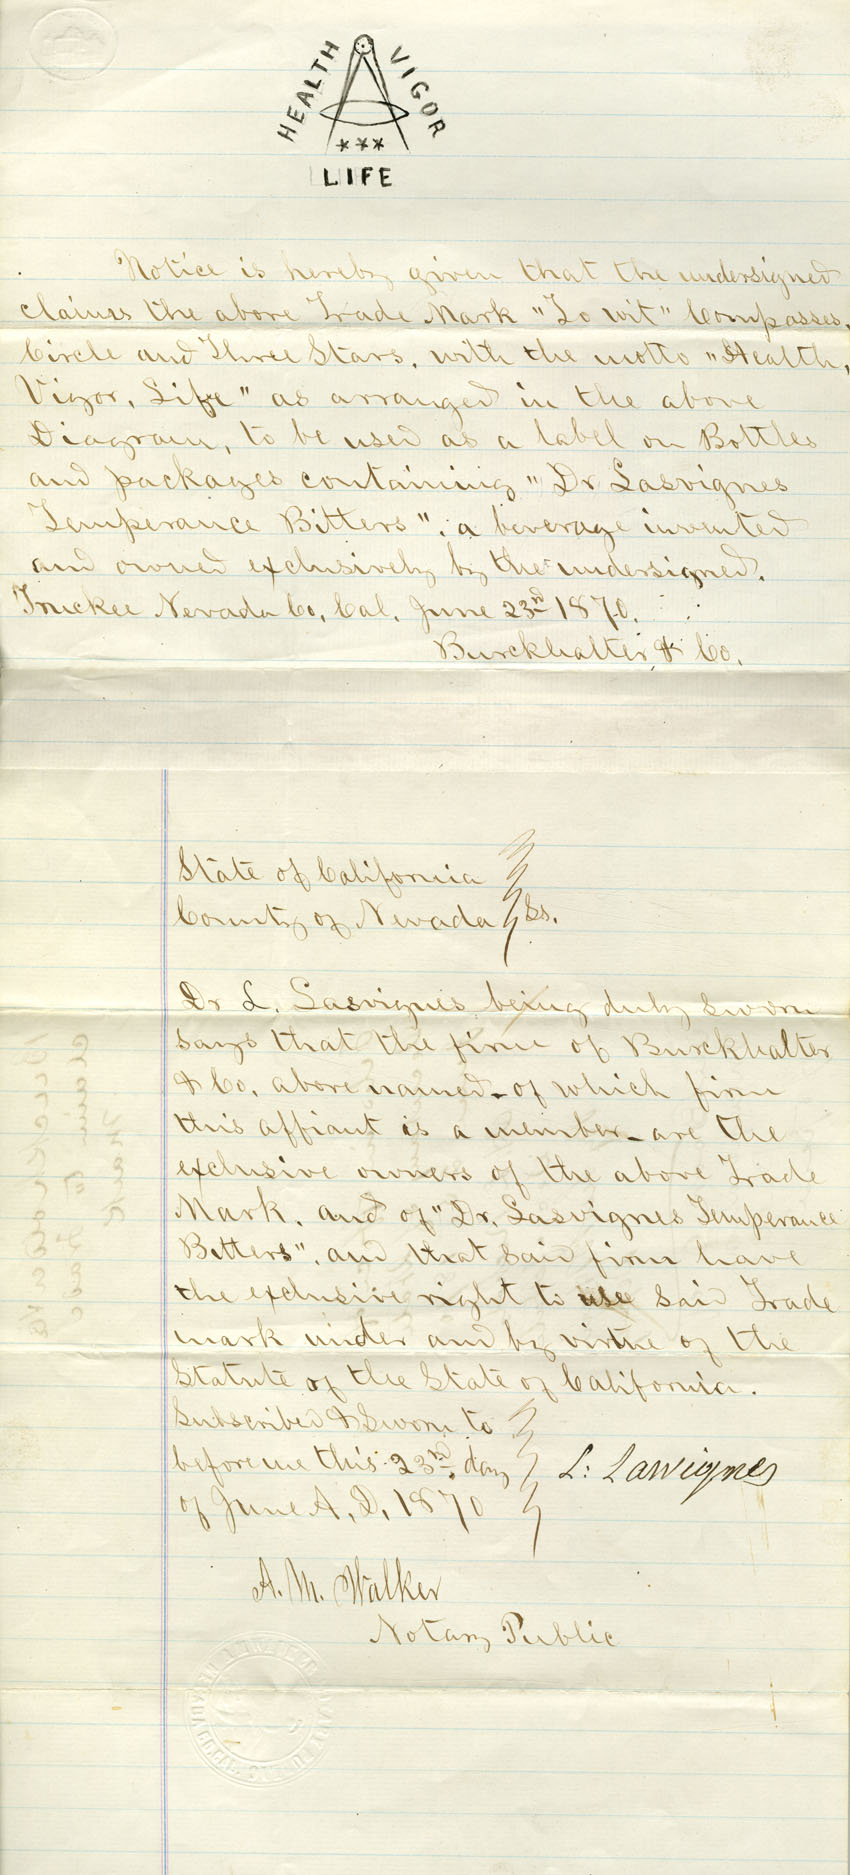 HEALTH VIGOR
***
LIFE
Notice is hereby given that the undersigned
claims the above Trade Mark "To wit" Compasses,
Circle and Three Stars, with the motto "Health,
Vigor, Life" as arranged in the above
Diagram, to be used as a label on Bottles
and packages containing "Dr Lasvignes
Temperance Bitters", a beverage invented
and owned exclusively by the undersigned.
Truckee Nevada Co, Cal, June 23rd 1870.
Burckhalter & Co.
State of California
County of Nevada } ss.
Dr L. Lasvignes being duly sworn
says that the firm of Burckhalter
& Co, above named - of which firm
this affiant is a member - are the
exclusive owners of the above Trade
Mark, and of "Dr. Lasvignes Temperance
Bitters", and that said firm have
the exclusive right to use said Trade
mark under and by virtue of the
Statute of the State of California.
Subscribed & Sworn to
before me this 23rd day } L: Lasvignes
of June A, D, 1870
A. M. Walker
Notary Public